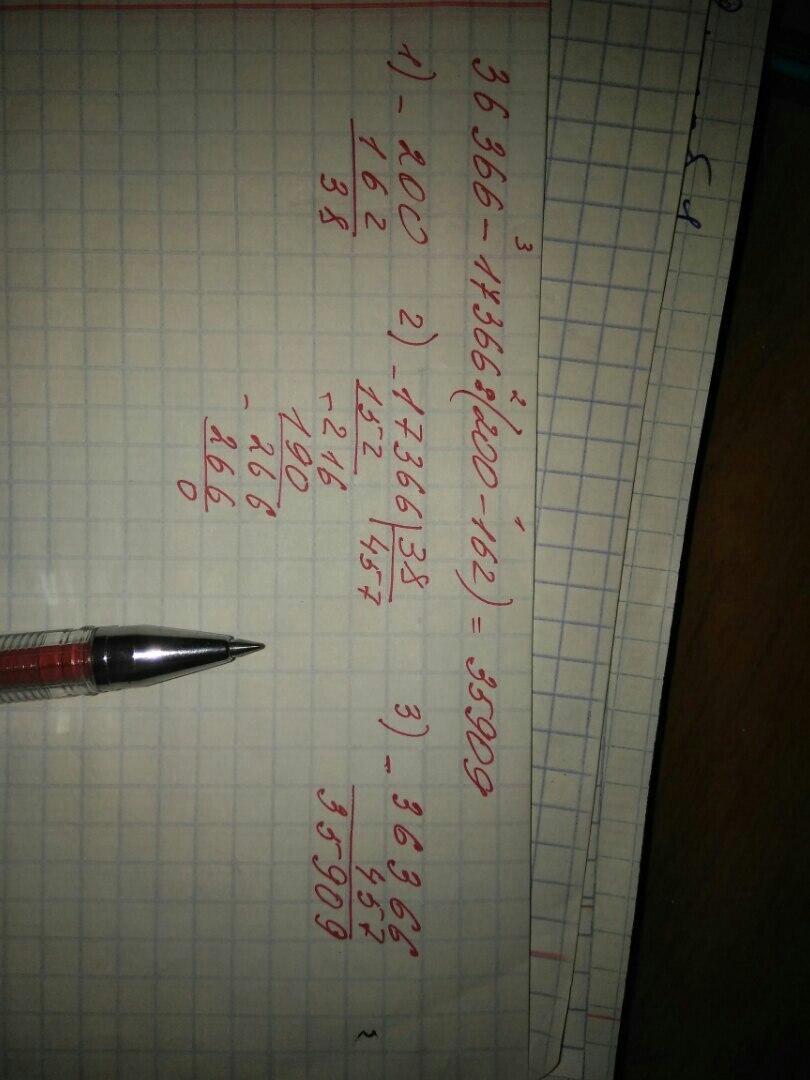 3 2 1
36 366 - 17366 : (200 - 162) = 35909
1) - 200 2) - 17366 | 38 3) - 36366
162 152 457 457
38 - 216 35909
190
- 266
266
0